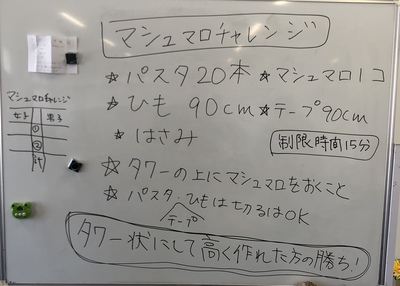 マシュマロチャレンジ
☆パスタ20本 ☆マシュマロ1コ
☆ひも 90cm ☆テープ90cm
☆はさみ
制限時間15分
☆タワーの上にマシュマロをおくこと
☆パスタ・ひもは切るはOK
テープ
タワー状にして高く作れた方の勝ち!
マシュマロチャレンジ
女子 男子
①
②
計